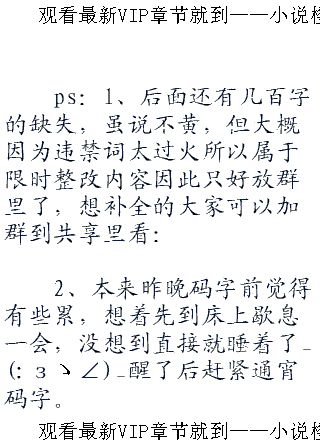 观看最新VIP章节就到——小说
ps：1、后面还有几百字
的缺失，虽说不黄，但大概
因为违禁词太过火所以属于
限时整改内容因此只好放群
里了，想补全的大家可以加
群到共享里看：
2、本来昨晚码字前觉得
有些累，想着先到床上歇息
一会，没想到直接就睡着了_
(：з ヽ∠)_醒了后赶紧通宵
码字。
观看最新VIP章节就到——小说